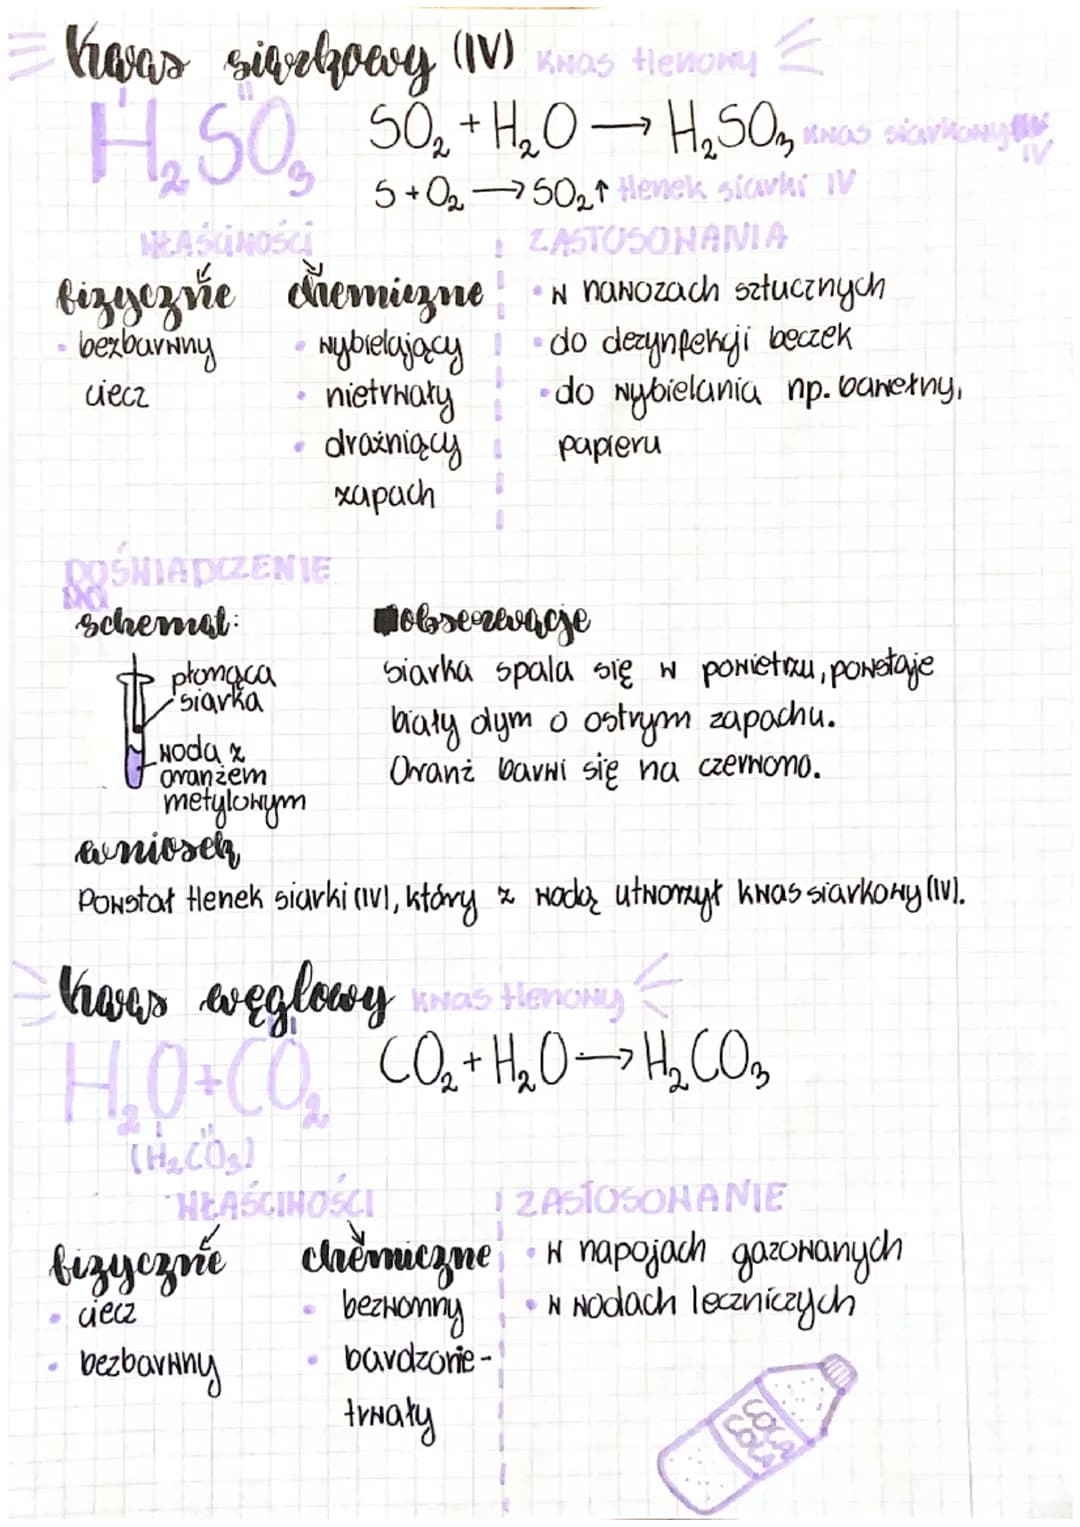 Kwas siarkowy (IV) kwas tlenowy
H₂SO₃
I II
SO₂ + H₂O → H₂SO₃ kwas siarkowy IV
S + O₂ → SO₂↑ tlenek siarki IV
WŁAŚCIWOŚCI
fizyczne
• bezbarwny
ciecz
chemiczne
• wybielający
• nietrwały
• drażniący
zapach
ZASTOSOWANIA
• w nawozach sztucznych
• do dezynfekcji beczek
• do wybielania np. bawełny,
papieru
DOŚWIADCZENIE
schemat:
płonąca
siarka
woda z
oranżem
metylowym
obserwacje
siarka spala się w powietrzu, powstaje
biały dym o ostrym zapachu.
Oranż barwi się na czerwono.
wniosek
Powstał tlenek siarki (IV), który z wodą utworzył kwas siarkowy (IV).
Kwas węglowy kwas tlenowy
H₂O+CO₂
I II
(H₂CO₃)
CO₂ + H₂O → H₂CO₃
WŁAŚCIWOŚCI
fizyczne
• ciecz
• bezbarwny
chemiczne
• bezwonny
• bardzo nie-
trwały
ZASTOSOWANIE
• w napojach gazowanych
• w wodach leczniczych